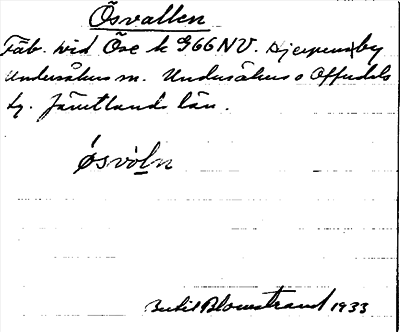 Ösvallen
Fäb. vid Öse k G66NV. Hjerpens by
Undersåkers sn. Undersåkers o Offerdals
tg. Jämtlands län.
ósvòln
Bertil Blomstrand 1933